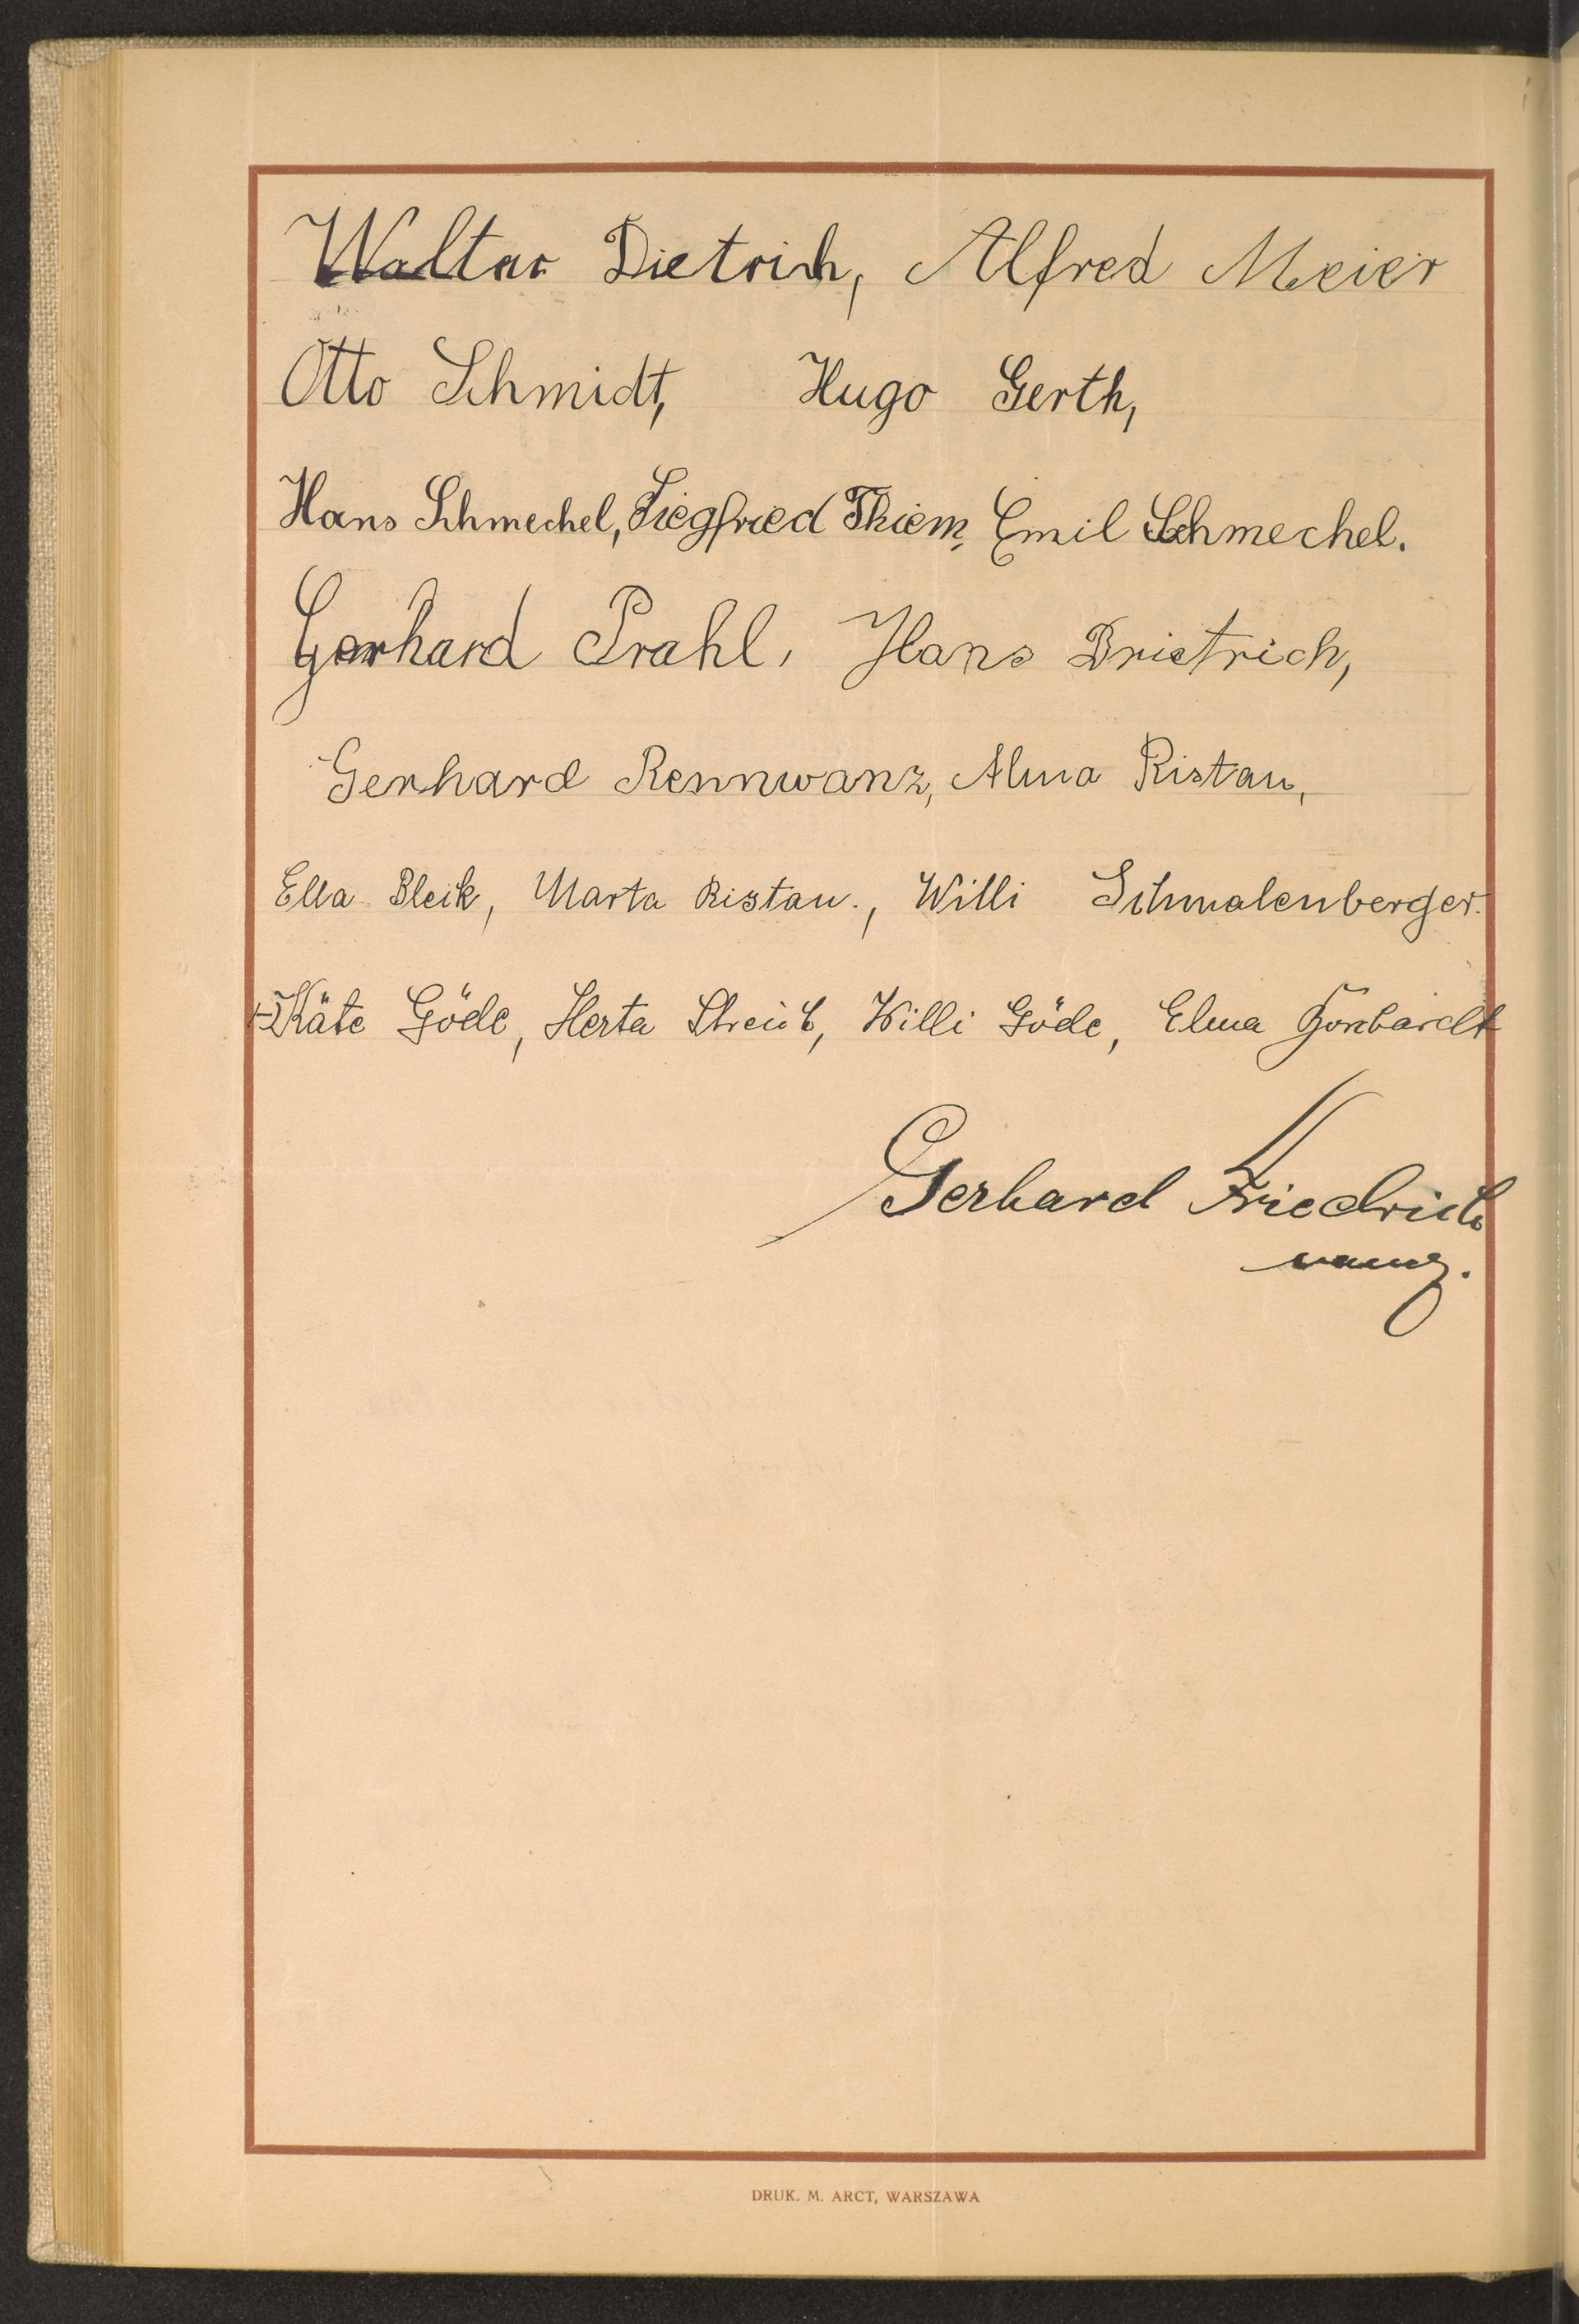 Walter Dietrich, Alfred Meier
Otto Schmidt, Hugo Gerth,
Hans Schmechel, Siegfried Thiem, Emil Schmechel.
Gerhard Prahl, Hans Drietrich,
Gerhard Rennwanz, Alma Ristau,
Ella Bleik, Marta Ristau., Willi Schmalenberger.
Käte Göde, Herta Streich, Willi Göde, Elma
Gerhard Friedrich
naucz.
DRUK. M. ARCT, WARSZAWA